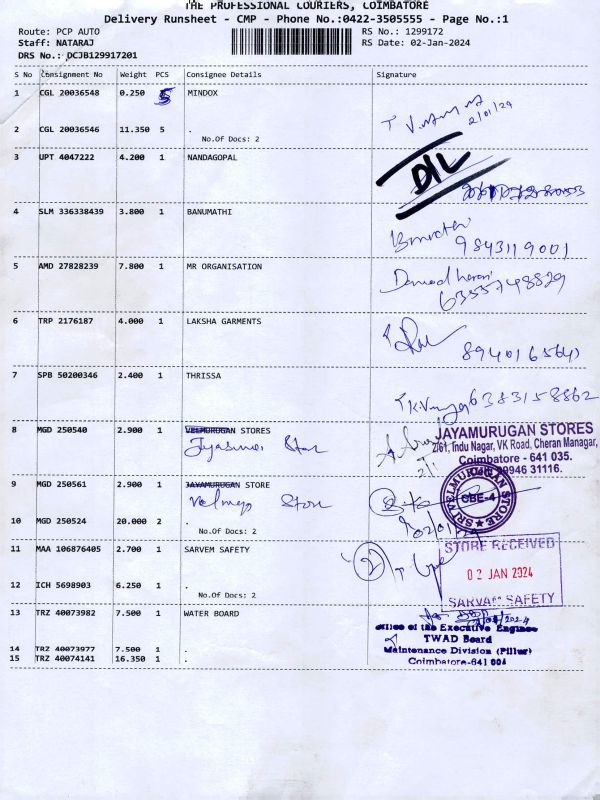 THE PROFESSIONAL COURIERS, COIMBATORE
Delivery Runsheet - CMP - Phone No.:0422-3505555 - Page No.:1
Route: PCP AUTO RS No.: 1299172
Staff: NATARAJ RS Date: 02-Jan-2024
DRS No.: DCJB129917201
S No Consignment No Weight PCS Consignee Details Signature
1 CGL 20036548 0.250 5 MINDOX
2/01/24
2 CGL 20036546 11.350 5 .
No.Of Docs: 2
3 UPT 4047222 4.200 1 NANDAGOPAL
D/L
4 SLM 336338439 3.800 1 BANUMATHI
9843119001
5 AMD 27828239 7.800 1 MR ORGANISATION
6355748829
6 TRP 2176187 4.000 1 LAKSHA GARMENTS
7 SPB 50200346 2.400 1 THRISSA
6383158862
8 MGD 250540 2.900 1 VELMURUGAN STORES
JAYAMURUGAN STORES
2/61, Indu Nagar, VK Road, Cheran Managar,
Coimbatore - 641 035.
09946 31116.
9 MGD 250561 2.900 1 JAYAMURUGAN STORE
SRI VELMURUGAN STORE
CBE-4
10 MGD 250524 20.000 2 .
No.Of Docs: 2
11 MAA 106876405 2.700 1 SARVEM SAFETY
2
STORE RECEIVED
02 JAN 2024
SARVAM SAFETY
12 ICH 5698903 6.250 1 .
No.Of Docs: 2
13 TRZ 40073982 7.500 1 WATER BOARD
Office of the Executive Engineer
TWAD Board
Maintenance Division (Pillur)
Coimbatore-641 001
14 TRZ 40073977 7.500 1 .
15 TRZ 40074141 16.350 1 .